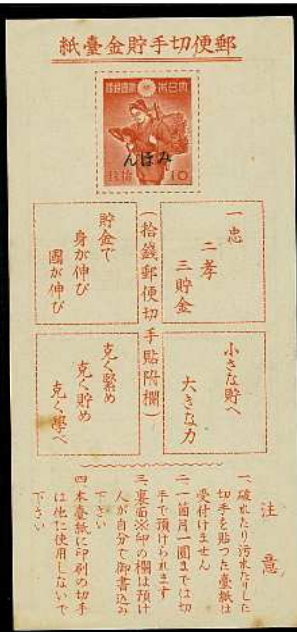 郵便切手貯金臺紙
大日本帝國郵便
みほん
拾銭
10
(拾錢郵便切手貼附欄)
一忠
二孝
三貯金
貯金で
身が伸び
國が伸び
小さな貯へ
大きな力
克く緊め
克く貯め
克く學べ
注意
一、破れたり汚れたりした
切手を貼つた臺紙は
受付けません
二、一箇月一圓までは切
手で預けられます
三、裏面※印の欄は預け
人が自分で御書込み
下さい
四、本臺紙に印刷の切手
は他に使用しないで
下さい